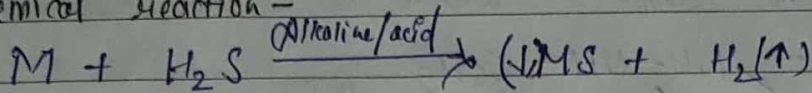 emical Reaction -
M + H₂S Alkaline/acid → (↓)MS + H₂(↑)